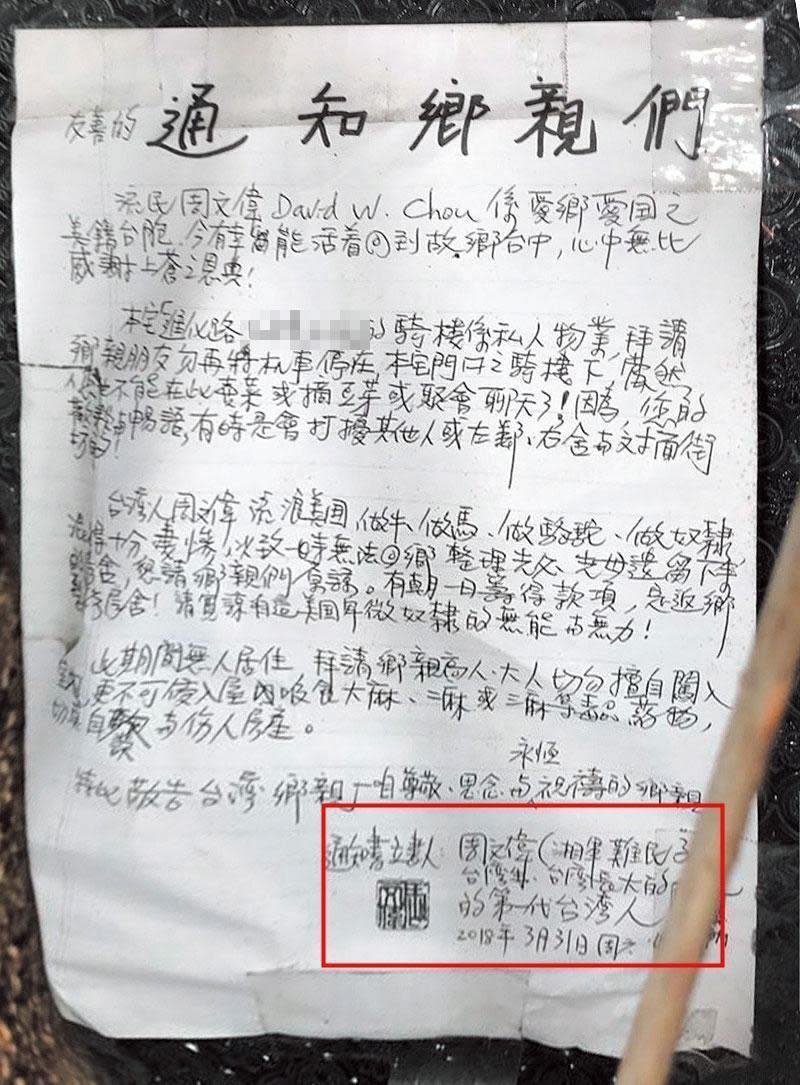 友善的 通知鄉親們
流民周文偉 David W. Chou 係愛鄉愛国之
美籍台胞.今有幸能活着回到故鄉台中,心中無比
感謝上蒼之恩典!
本宅進化路 的騎楼係私人物業,拜請
鄉親朋友勿再將机車停在本宅門口之騎楼下,當然
也不能在此賣菜或摘豆芽或聚會聊天了!因為,您的
暢語,有時是會打擾其他人或左鄰、右舍与对面街
坊的!
台湾人周文偉流浪美国,做牛、做馬、做駱駝、做奴隸,
十分悽慘,以致一時無法回鄉整理先父、先母遺留下來
舍,懇請鄉親們原諒。有朝一日籌得款項,返鄉
居舍!請寬諒有這美国卑微奴隸的無能与無力!
此期間無人居住,拜請鄉親高人、大人切勿擅自闖入
更不可侵入屋內吸食大麻、二麻或三麻等毒品药物,
自 与伤人房座。
永恒
特此敬告台灣鄉親,咱尊敬、思念与祝禱的鄉親
通知書立書人:周文偉(湘軍難民
台灣生、台灣長大的
的第一代台灣人
2018年3月31日周六